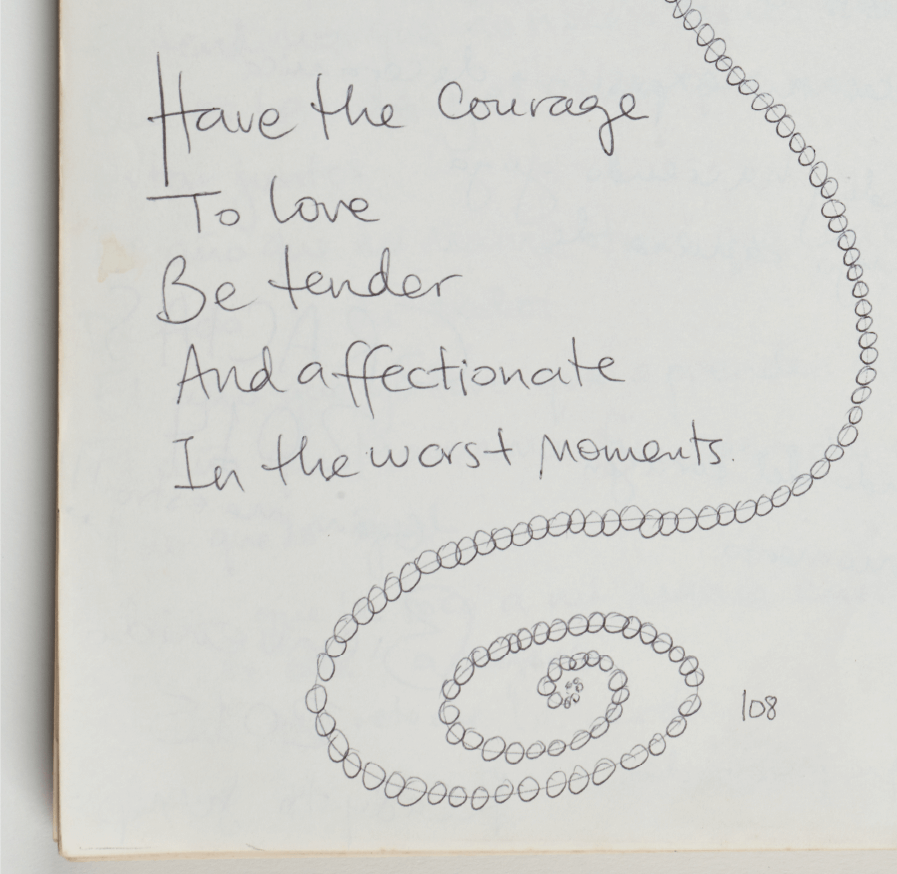 Have the Courage
To love
Be tender
And affectionate
In the worst moments.
108